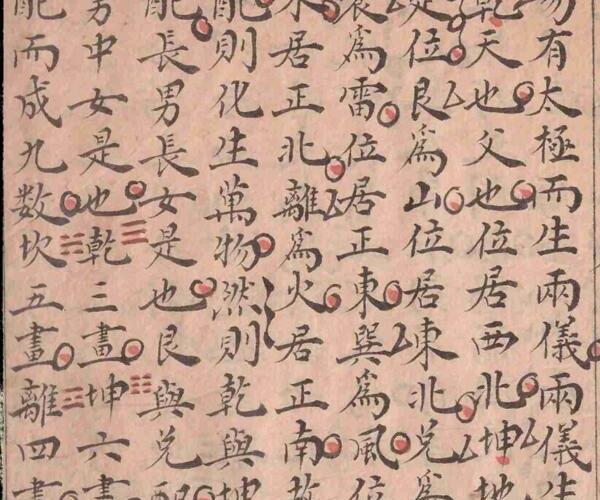 易有太極而生兩儀兩儀生
乾天也父也位居西北坤地
是位艮為山位居東北兌為
震為雷位居正東巽為風位
水居正北離為火居正南故
配則化生萬物然則乾與坤
配長男長女是也艮與兌配
男中女是也乾三畫坤六畫
配而成九数坎五畫離四畫